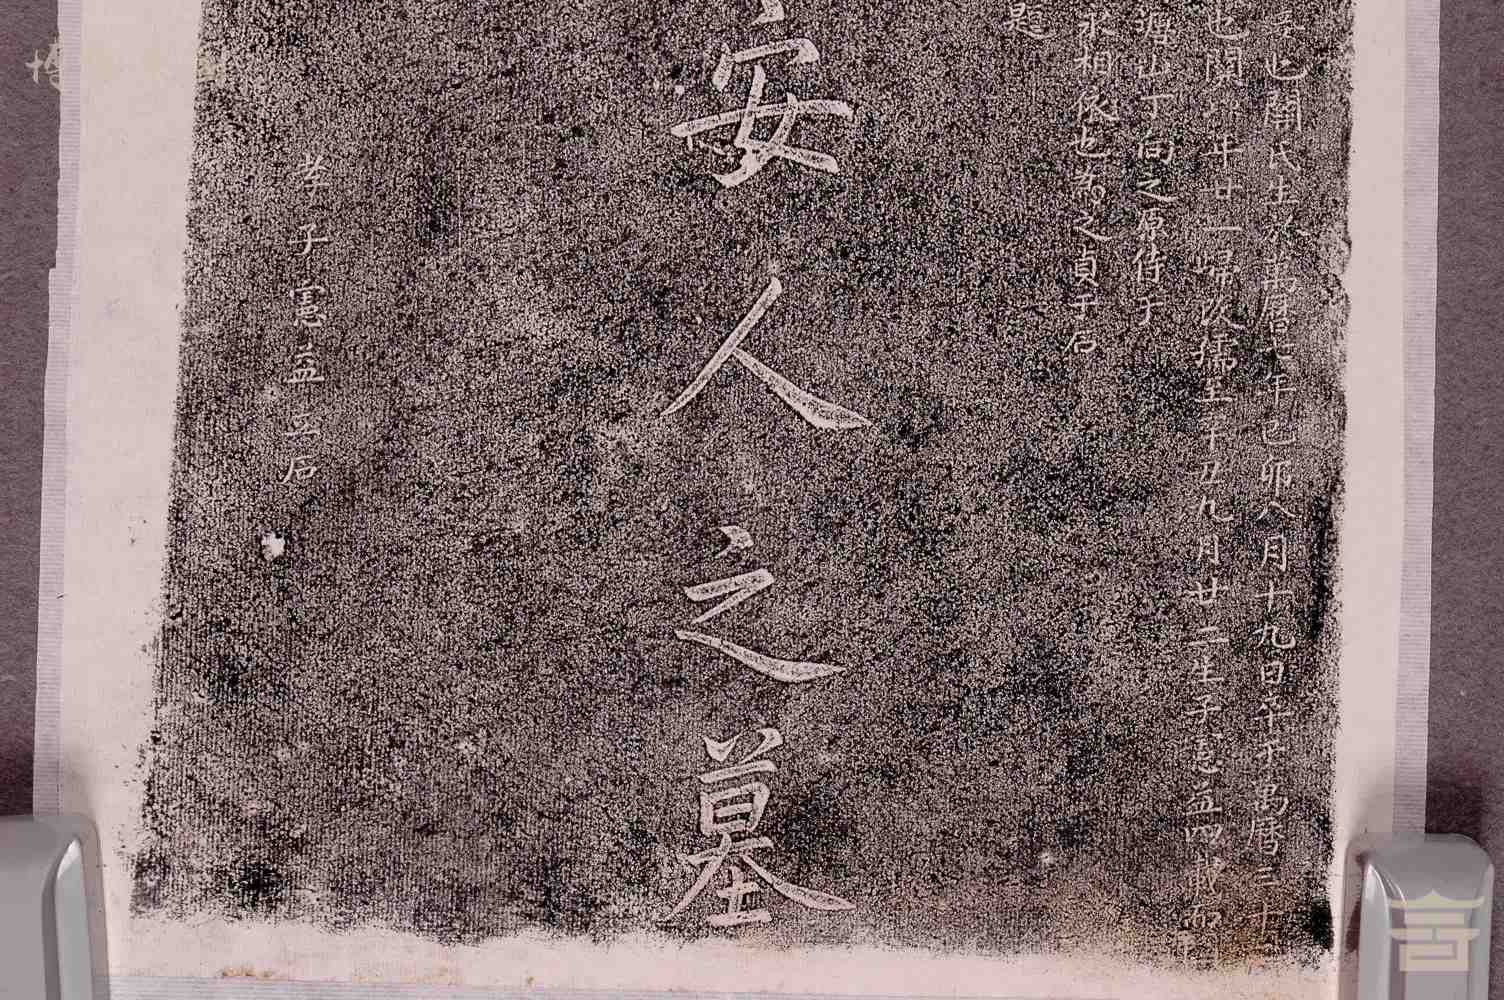 也關氏生於萬曆七年己卯八月十九日卒于萬曆三十
也閱 年廿一歸 孺 丁丑九月廿二生子憲益四載而
山丁向之原待于
永相依也為之貞于石
題
安人之墓
孝子憲益立石